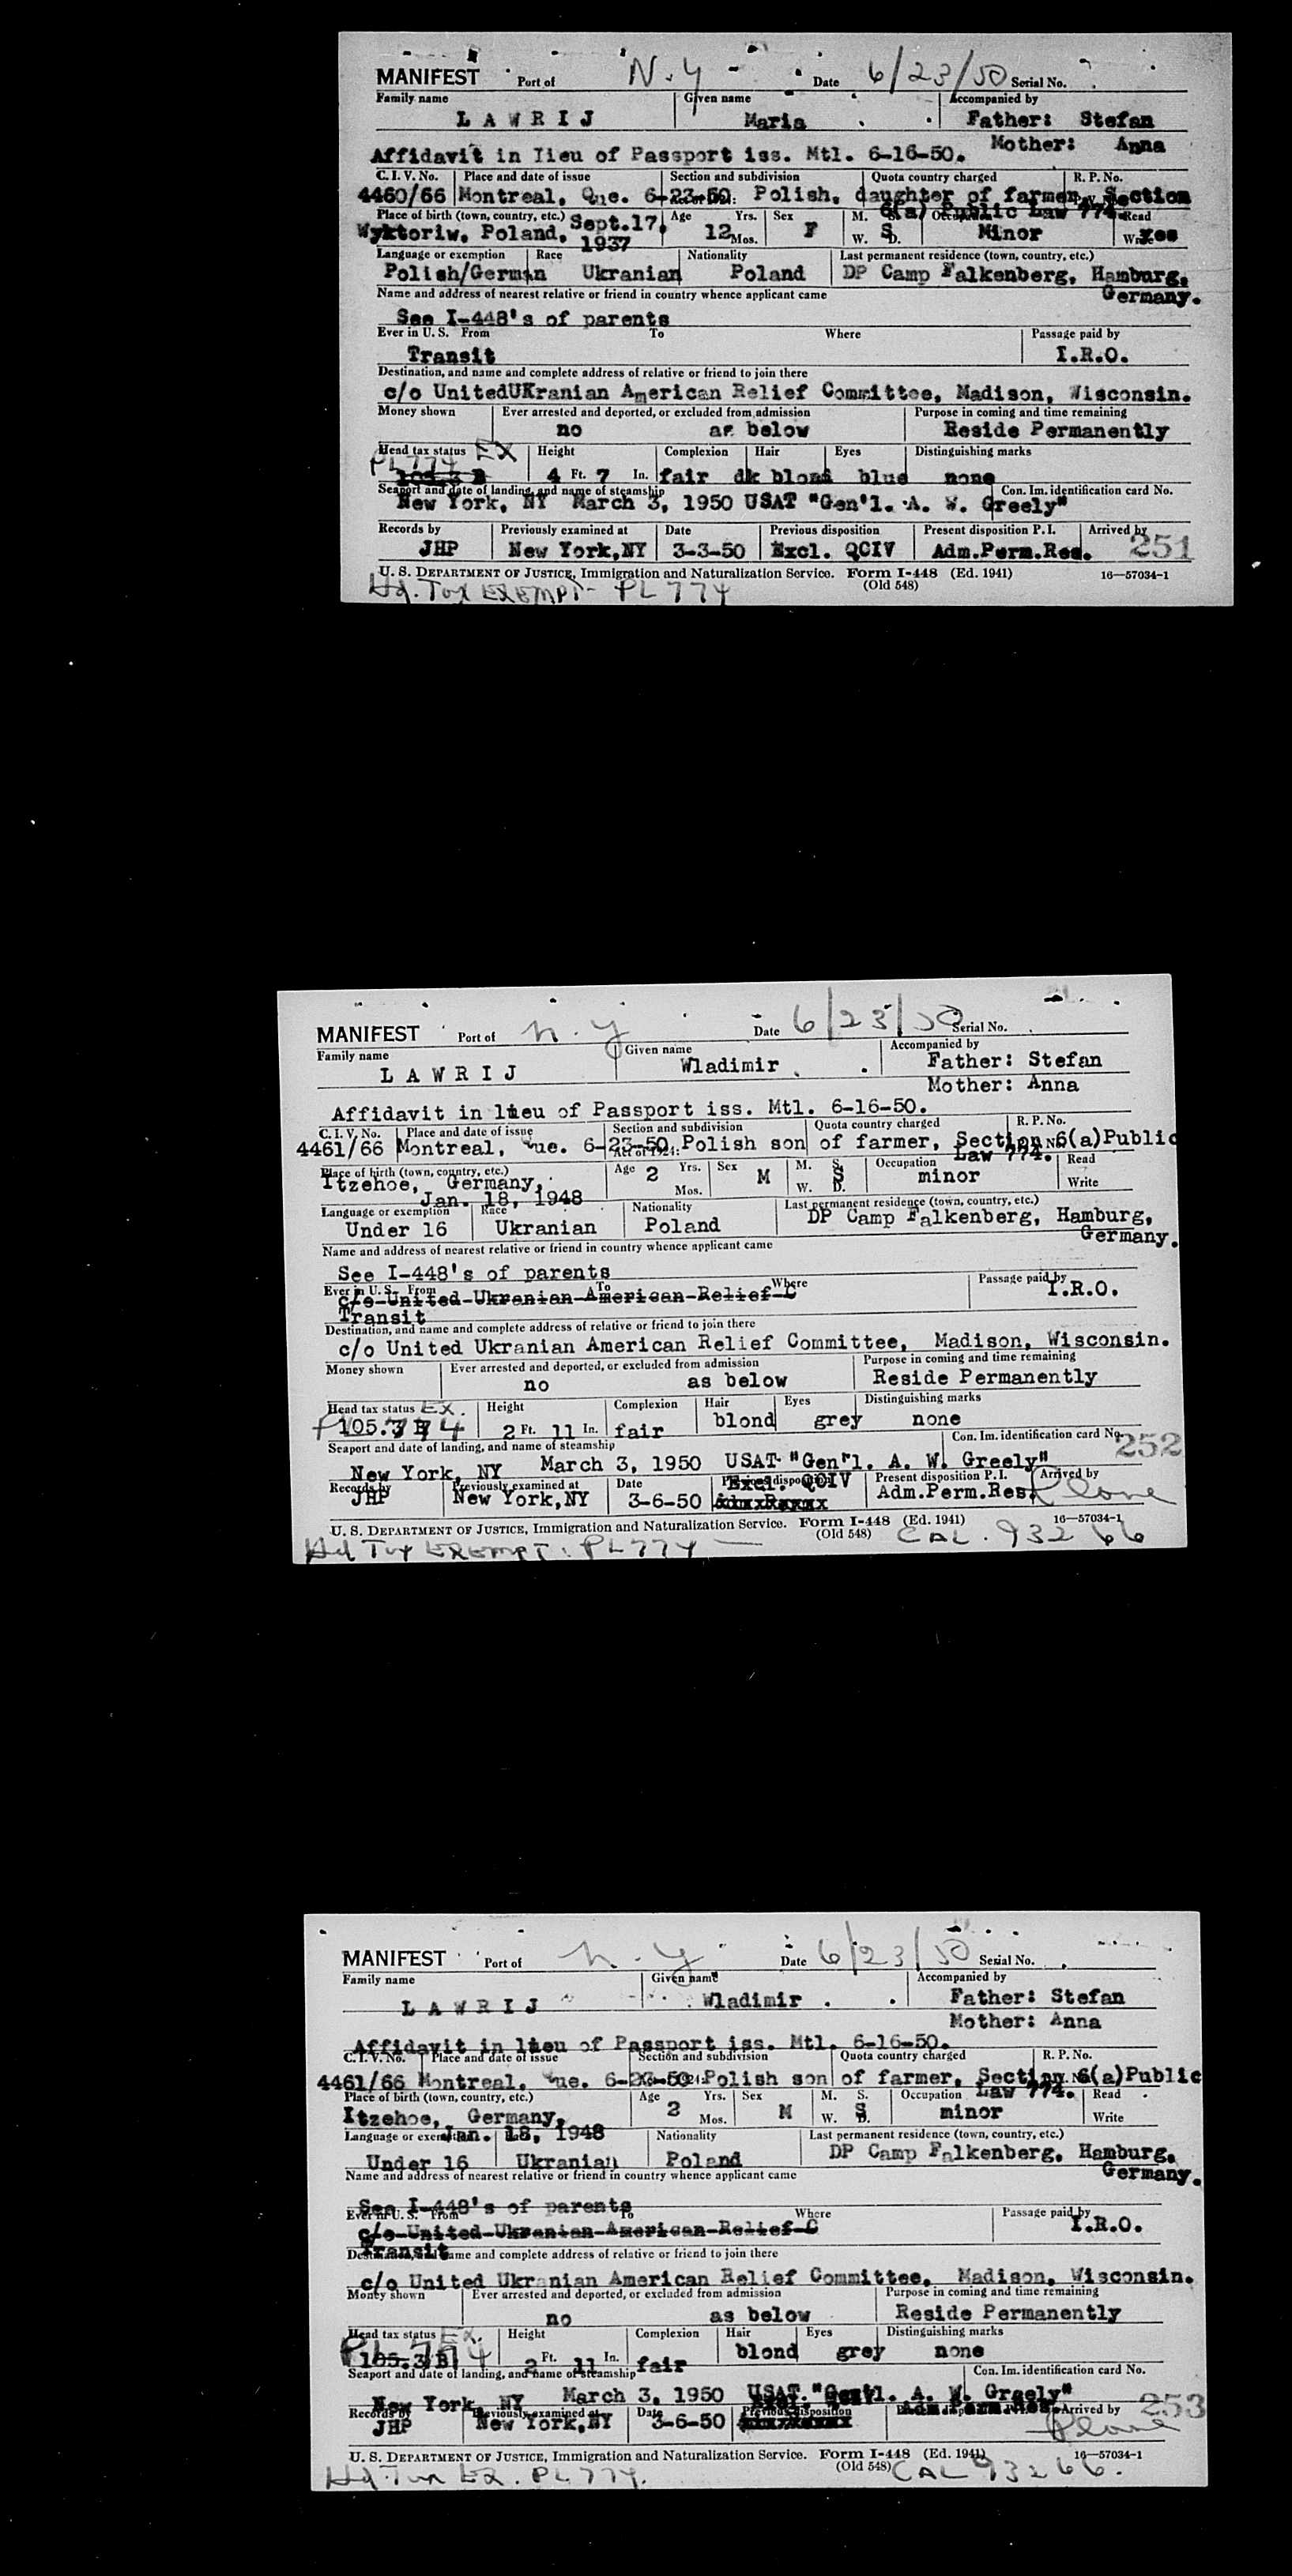 MANIFEST Port of N.Y Date 6/23/50 Serial No.
Family name Given name Accompanied by
L A W R I J Maria Father: Stefan
Mother: Anna
Affidavit in Iieu of Passport iss. Mtl. 6-16-50.
C. I. V. No. Place and date of issue Section and subdivision Quota country charged R. P. No.
4460/66 Montreal, Que. 6-23-50. Polish, daughter of farmer, Section
6(a) Public Law 774.
Place of birth (town, country, etc.) Age Yrs. Sex M. S. Occupation Read
Wyktoriw, Poland, Sept.17, 1937 12 Mos. F W. S D. Minor Write yes
Language or exemption Race Nationality Last permanent residence (town, country, etc.)
Polish/German Ukranian Poland DP Camp Falkenberg, Hamburg,
Germany.
Name and address of nearest relative or friend in country whence applicant came
See I-448's of parents
Ever in U. S. From To Where Passage paid by
Transit I.R.O.
Destination, and name and complete address of relative or friend to join there
c/o UnitedUKranian American Relief Committee, Madison, Wisconsin.
Money shown Ever arrested and deported, or excluded from admission Purpose in coming and time remaining
no as below Reside Permanently
Head tax status EX Height Complexion Hair Eyes Distinguishing marks
PL774 105.3 B 4 Ft. 7 In. fair dk blond blue none
Seaport and date of landing, and name of steamship Con. Im. identification card No.
New York, NY March 3, 1950 USAT "Gen'l. A. W. Greely"
Records by Previously examined at Date Previous disposition Present disposition P. I. Arrived by
JHP New York,NY 3-3-50 Excl. QCIV Adm.Perm.Res. 251
U. S. DEPARTMENT OF JUSTICE, Immigration and Naturalization Service. Form I-448 (Ed. 1941) 16—57034-1
(Old 548)
Hd. Tax EXEMPT- PL 774
MANIFEST Port of n.y Date 6/23/50 Serial No.
Family name Given name Accompanied by
L A W R I J Wladimir Father: Stefan
Mother: Anna
Affidavit in lieu of Passport iss. Mtl. 6-16-50.
C. I. V. No. Place and date of issue Section and subdivision Quota country charged R. P. No.
4461/66 Montreal, Que. 6-23-50. Polish son of farmer, Section 6(a)Public
Law 774.
Place of birth (town, country, etc.) Age Yrs. Sex M. S. Occupation Read
Itzehoe, Germany, 2 Mos. M W. S D. minor Write
Jan. 18, 1948
Language or exemption Race Nationality Last permanent residence (town, country, etc.)
Under 16 Ukranian Poland DP Camp Falkenberg, Hamburg,
Germany.
Name and address of nearest relative or friend in country whence applicant came
See I-448's of parents
Ever in U. S. From To Where Passage paid by
c/o-United-Ukranian-American-Relief-C I.R.O.
Transit
Destination, and name and complete address of relative or friend to join there
c/o United Ukranian American Relief Committee, Madison, Wisconsin.
Money shown Ever arrested and deported, or excluded from admission Purpose in coming and time remaining
no as below Reside Permanently
Head tax status EX. Height Complexion Hair Eyes Distinguishing marks
PL774 105.3 B 2 Ft. 11 In. fair blond grey none
Seaport and date of landing, and name of steamship Con. Im. identification card No.
New York, NY March 3, 1950 USAT "Gen'l. A. W. Greely" 252
Records by Previously examined at Date Previous disposition Present disposition P. I. Arrived by
JHP New York,NY 3-6-50 Excl. QCIV Adm.Perm.Res. Plane
U. S. DEPARTMENT OF JUSTICE, Immigration and Naturalization Service. Form I-448 (Ed. 1941) 16—57034-1
(Old 548) CAL. 93266
Hd Tax EXEMPT. PL774
MANIFEST Port of n.y Date 6/23/50 Serial No.
Family name Given name Accompanied by
L A W R I J Wladimir Father: Stefan
Mother: Anna
Affidavit in lieu of Passport iss. Mtl. 6-16-50.
C. I. V. No. Place and date of issue Section and subdivision Quota country charged R. P. No.
4461/66 Montreal, Que. 6-23-50. Polish son of farmer, Section 6(a)Public
Law 774.
Place of birth (town, country, etc.) Age Yrs. Sex M. S. Occupation Read
Itzehoe, Germany, 2 Mos. M W. S D. minor Write
Jan. 18, 1948
Language or exemption Nationality Last permanent residence (town, country, etc.)
Under 16 Ukranian Poland DP Camp Falkenberg, Hamburg,
Germany.
Name and address of nearest relative or friend in country whence applicant came
See I-448's of parents
Ever in U. S. From To Where Passage paid by
c/o-United-Ukranian-American-Relief-C I.R.O.
Transit
Destination, and name and complete address of relative or friend to join there
c/o United Ukranian American Relief Committee, Madison, Wisconsin.
Money shown Ever arrested and deported, or excluded from admission Purpose in coming and time remaining
no as below Reside Permanently
Head tax status EX. Height Complexion Hair Eyes Distinguishing marks
PL774 105.3 B 2 Ft. 11 In. fair blond grey none
Seaport and date of landing, and name of steamship Con. Im. identification card No.
New York, NY March 3, 1950 USAT. "Gen'l. A. W. Greely"
Records by Previously examined at Date Previous disposition Arrived by 253
JHP New York,NY 3-6-50 Adm.Perm.Res. Plane
U. S. DEPARTMENT OF JUSTICE, Immigration and Naturalization Service. Form I-448 (Ed. 1941) 16—57034-1
(Old 548) CAL 93266.
Hd. Tax EX. PL774.